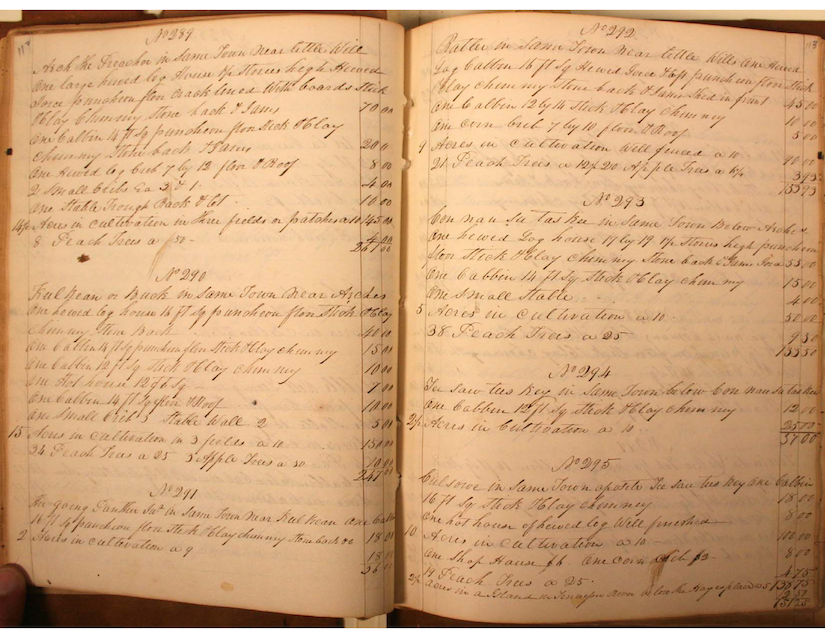 No 289
Arch the Preacher in Same Town Near little Will
One large hewed log House 1½ Stories high Hewed
puncheon flor with boards Stick
& Clay Chimney Stone back & Jams 70 00
One Cabbin 14 ft Sq puncheon flor Stick & Clay
Chimney Stone back & 20 0
One Hewed log Crib 7 by 12 flor & Roof 8 00
2 Small Cribs Ea 3 & 1 4 00
One Stable Trough Rack & Lot 10 00
14½ Acres in cultivation in three fields or patches a 10 145 00
8 Peach Trees a 50 4 00
261 00
No 290
or Buck in Same Town Near Arches
One hewed log house 16 ft Sq puncheon flor Stick & Clay
Chimney Stone Back 40 00
One Cabbin 14 ft Sq puncheon flor Stick & Clay chimney 15 00
One Cabbin 12 ft Sq Stick & Clay Chimney 10 00
One Hot house 12 ft Sq 7 00
One Cabbin 14 ft Sq flor & Roof 10 00
One Small Crib 3 Stable Wall 2 5 00
15 Acres in cultivation in 3 fields a 10 150 00
34 Peach Trees a 25 3 Apple Trees a 50 10 00
247 00
No 291
going Panther in Same Town Near One Cabbin
16 ft Sq puncheon flor Stick & Clay chimney Stone back &c 18 00
2 Acres in cultivation a 9 18 00
36 00
113
No 292
Ratler in Same Town Near little Wills One Hewed
Log Cabbin 16 ft Sq Hewd puncheon flor Stick
& Clay chimney Stone back & Jams Shed in frunt 45 00
One Cabbin 12 by 14 Stick & Clay chimney 10 00
One Corn Crib 7 by 10 flor & Roof 5 00
9 Acres in cultivation Well fenced a 10 90 00
21 Peach Trees a 12½ 20 Apple Trees a 6¼
No 293
Con nau Su tas kee in Same Town Below Arches
One hewed Log house 17 by 19 1½ Stories high puncheon
flor Stick & Clay Chimney Stone back & Jams 55 00
One Cabbin 14 ft Sq Stick & Clay chimney 15 00
One Small Stable 4 00
5 Acres in cultivation a 10 50 00
38 Peach Trees a 25 9 50
133 50
No 294
Tee saw tees key in Same Town below Con nau su tas kee
One Cabbin 12 ft Sq Stick & Clay chimney 12 00
2½ Acres in Cultivation a 10 25 00
37 00
No 295
in Same Town opasite Tee saw tees key One Cabbin
16 ft Sq Stick & Clay chimney 18 00
One hot house of hewed log Well finished 8 00
10 Acres in cultivation a 10 100 00
One Shop House $6 One corn crib $2 8 00
19 Peach Trees a 25 4 75
Acres in a Island in